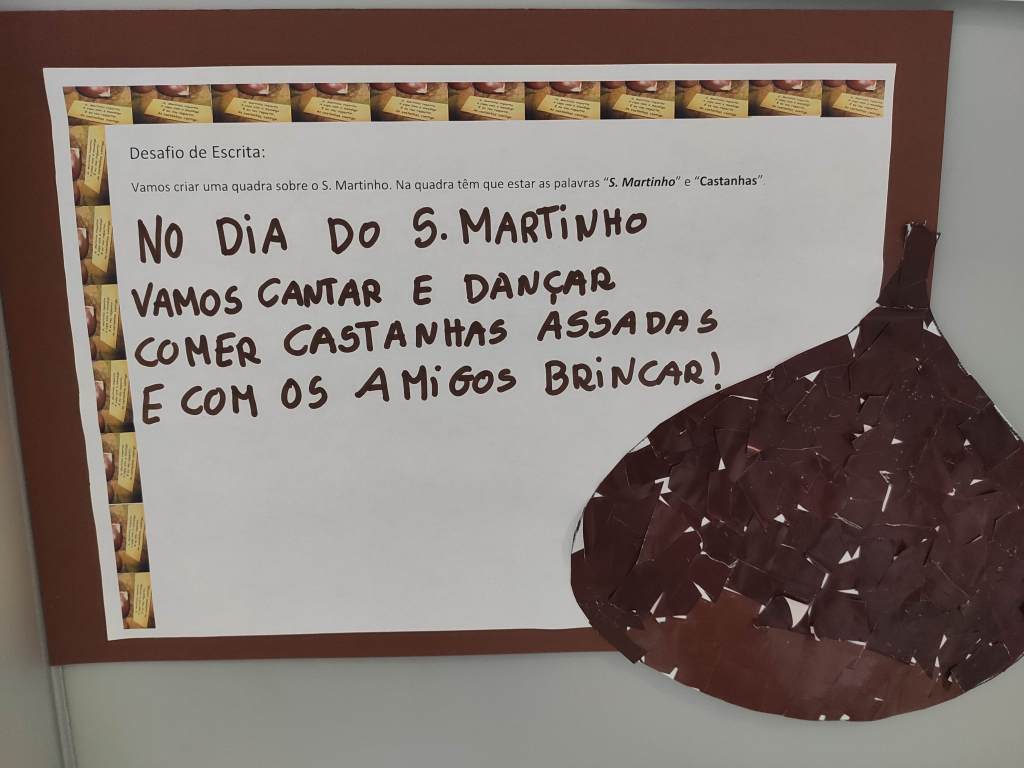 Desafio de Escrita:
Vamos criar uma quadra sobre o S. Martinho. Na quadra têm que estar as palavras “S. Martinho” e “Castanhas”.
NO DiA DO S. MARTiNHO
VAMOS CANTAR E DANÇAR
COMER CASTANHAS ASSADAS
E COM OS AMiGOS BRiNCAR!